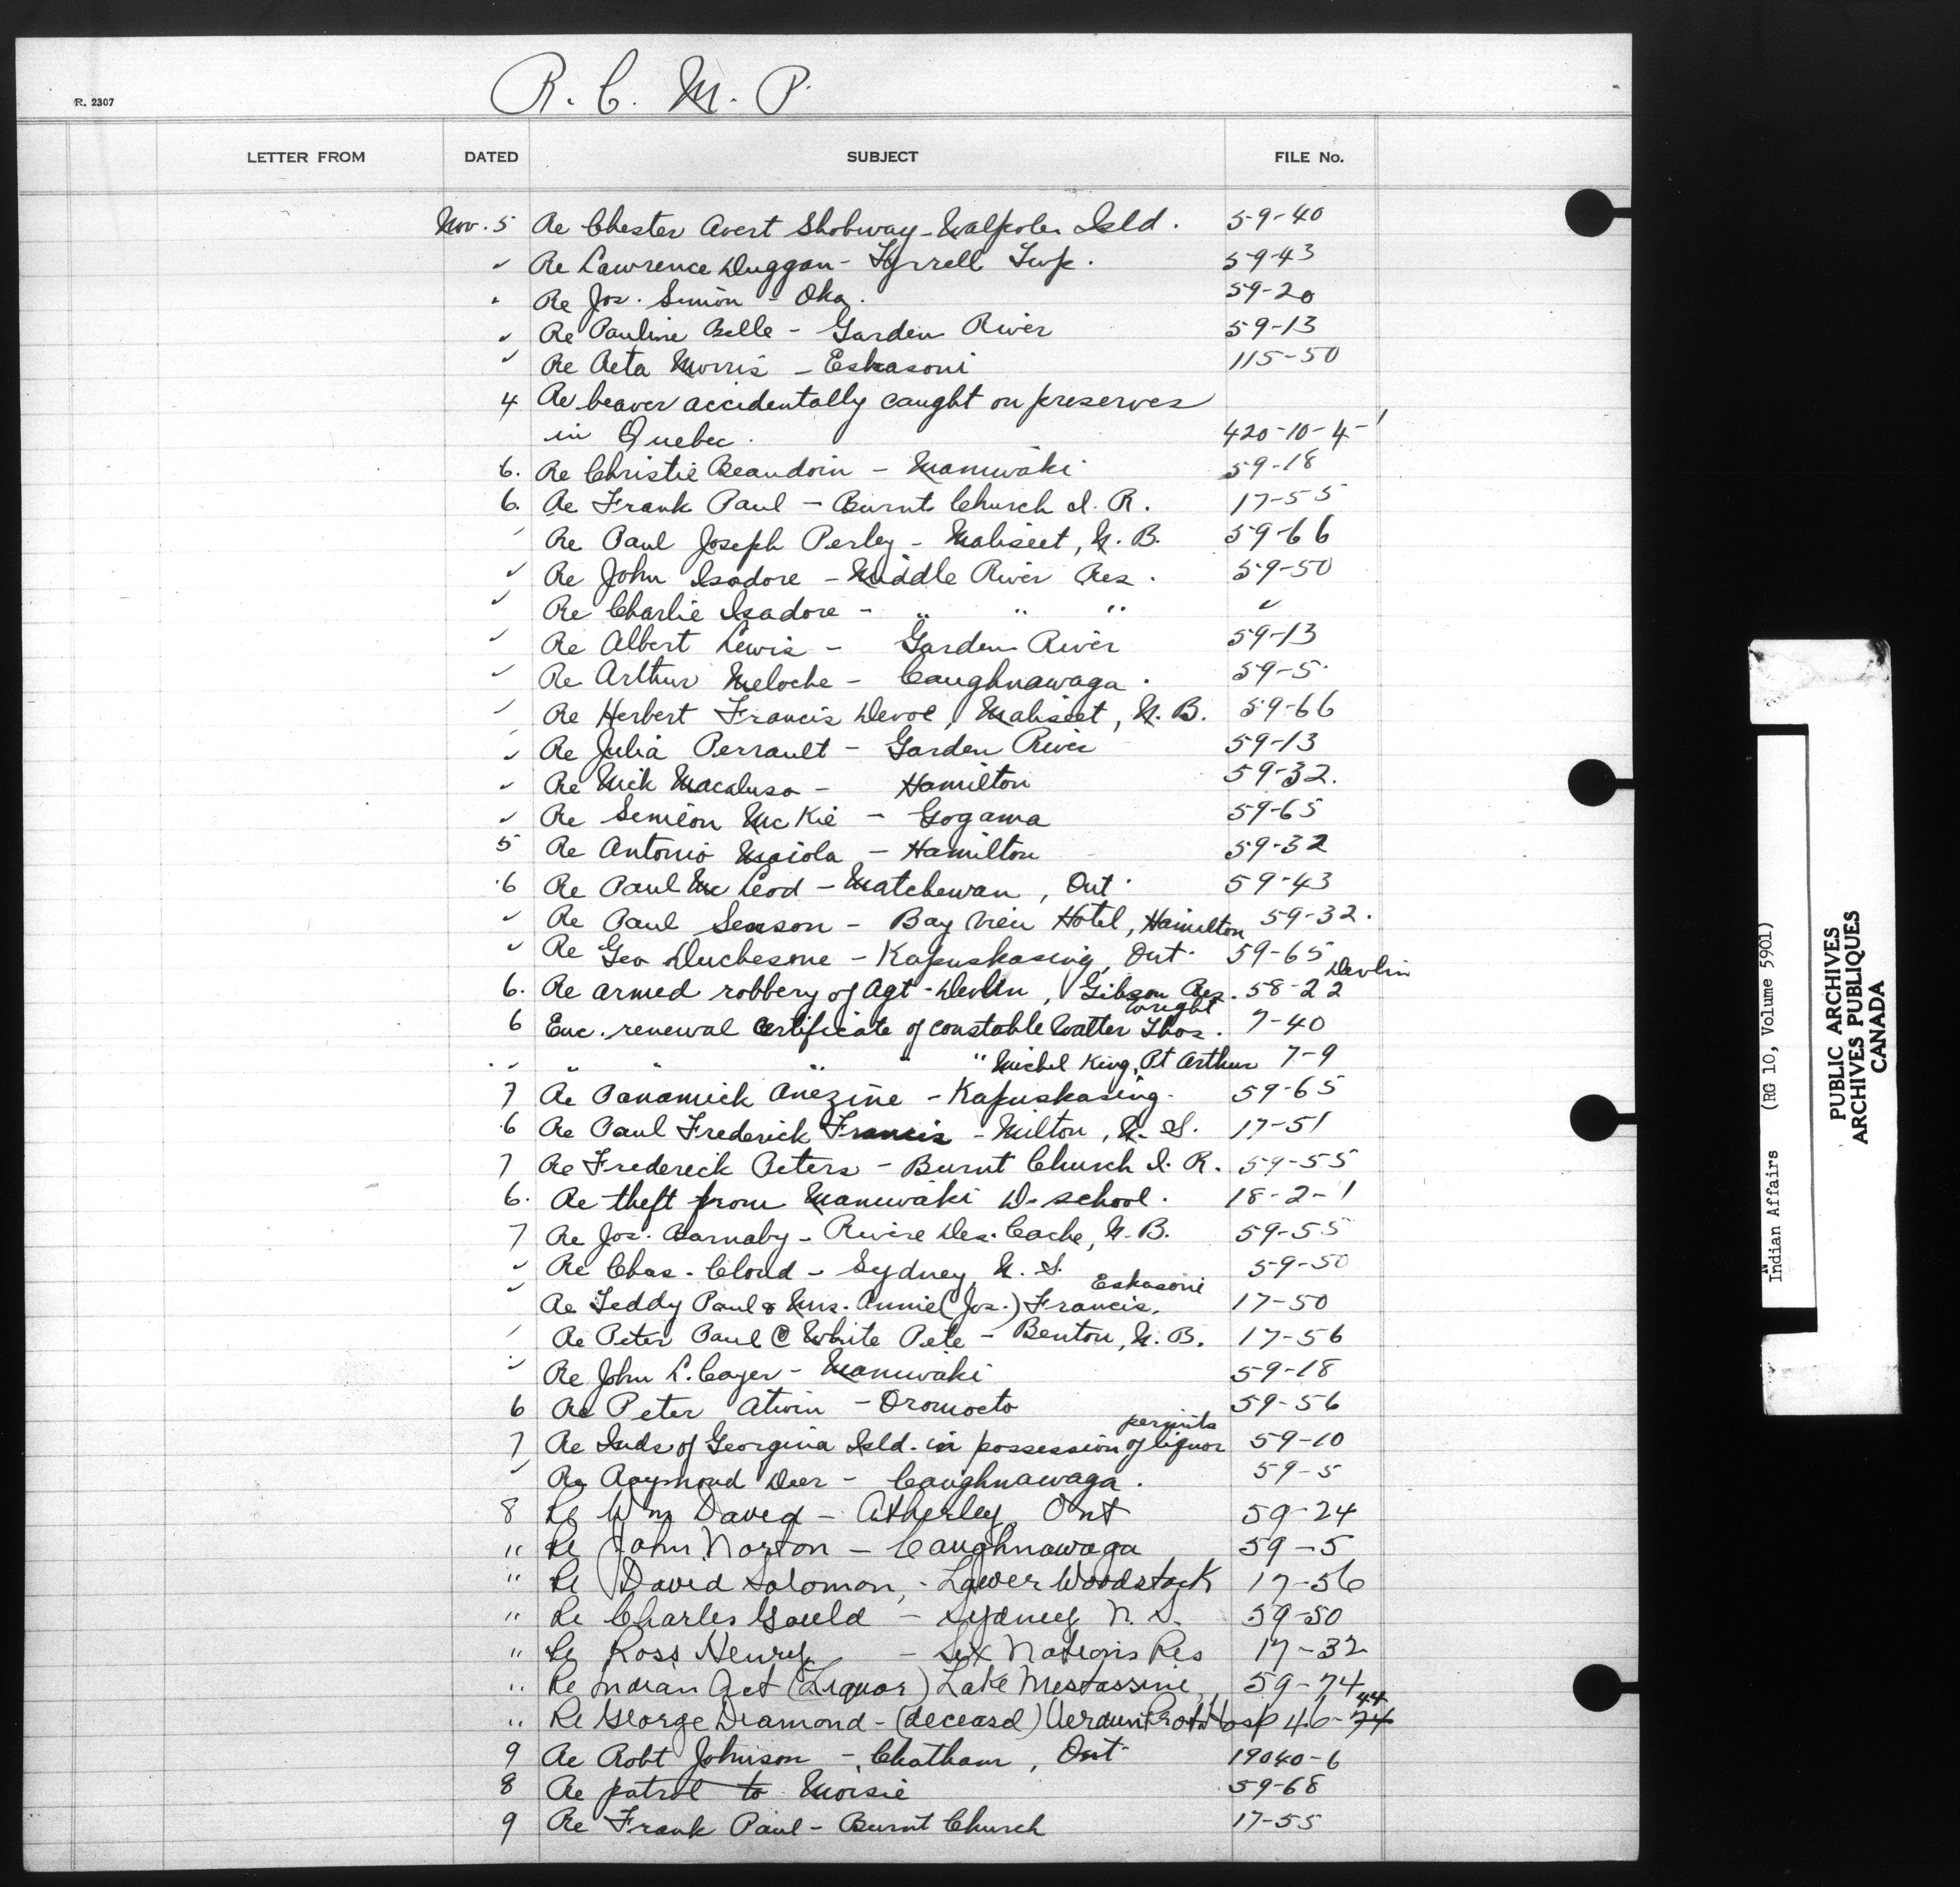 R. C. M. P.
R. 2307
LETTER FROM DATED SUBJECT FILE No.
Nov. 5 Re Chester Avert Shobway - Walpole Isld. 59-40
" Re Lawrence Duggan - Tyrrell Twp. 59-43
" Re Jos. Simon - Oka. 59-20
" Re Pauline Belle - Garden River 59-13
" Re Aeta Morris - Eskasoni 115-50
4 Re beaver accidentally caught on preserves
in Quebec. 420-10-4-1
6. Re Christie Beaudoin - Maniwaki 59-18
6. Re Frank Paul - Burnt Church I. R. 17-55
" Re Paul Joseph Perley - Maliseet, N. B. 59-66
" Re John Isadore - Middle River Res. 59-50
" Re Charlie Isadore - " " " "
" Re Albert Lewis - Garden River 59-13
" Re Arthur Meloche - Caughnawaga. 59-5
" Re Herbert Francis Devoe, Maliseet, N. B. 59-66
" Re Julia Perrault - Garden River 59-13
" Re Nick Macaluso - Hamilton 59-32.
" Re Simeon McKie - Gogama 59-65
5 Re Antonio Maiola - Hamilton 59-32
6 Re Paul McLeod - Matchewan, Ont. 59-43
" Re Paul Season - Bay View Hotel, Hamilton 59-32.
" Re Geo Duchesne - Kapuskasing, Ont. 59-65
Devlin
6. Re armed robbery of Agt. Devlin, Gibson Res. 58-22
Wright
6 Enc. renewal certificate of constable Walter Thos. 7-40
" " " " " " Michel King, Pt Arthur 7-9
7 Re Panamick Anezine - Kapuskasing. 59-65
6 Re Paul Frederick Francis - Milton, N. S. 17-51
7 Re Frederick Peters - Burnt Church I. R. 59-55
6. Re theft from Maniwaki D-school. 18-2-1
7 Re Jos. Barnaby - Rivire Des. Cache, N. B. 59-55
" Re Chas. Cloud - Sydney, N. S. 59-50
Eskasoni
" Re Teddy Paul & Mrs. Annie (Jos.) Francis. 17-50
" Re Peter Paul @ White Pete - Benton, N. B. 17-56
" Re John L. Cayer - Maniwaki 59-18
6 Re Peter Atwin - Oromocto 59-56
permits
7 Re Inds of Georgina Isld. in possession of liquor 59-10
" Re Raymond Deer - Caughnawaga. 59-5
8 Re Wm David - Atherley Ont 59-24
" Re John Norton - Caughnawaga 59-5
" Re David Solomon, - Lower Woodstock 17-56
" Re Charles Gould - Sydney N. S. 59-50
" Re Ross Henry - Six Nations Res 17-32
" Re Indian Act (Liquor) Lake Mestassini, 59-74
44
" Re George Diamond - (deceasd) Verdun Prot Hosp 46-74
9 Re Robt Johnson - Chatham, Ont. 19040-6
8 Re patrol to Moisie 59-68
9 Re Frank Paul - Burnt Church 17-55
Indian Affairs (RG 10, Volume 5901)
PUBLIC ARCHIVES
ARCHIVES PUBLIQUES
CANADA